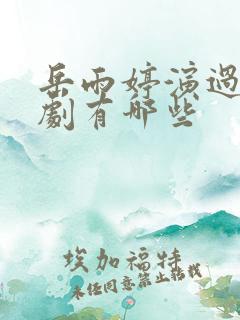 岳雨婷演過
劇有哪些
埃加福特
未经同意禁止转载